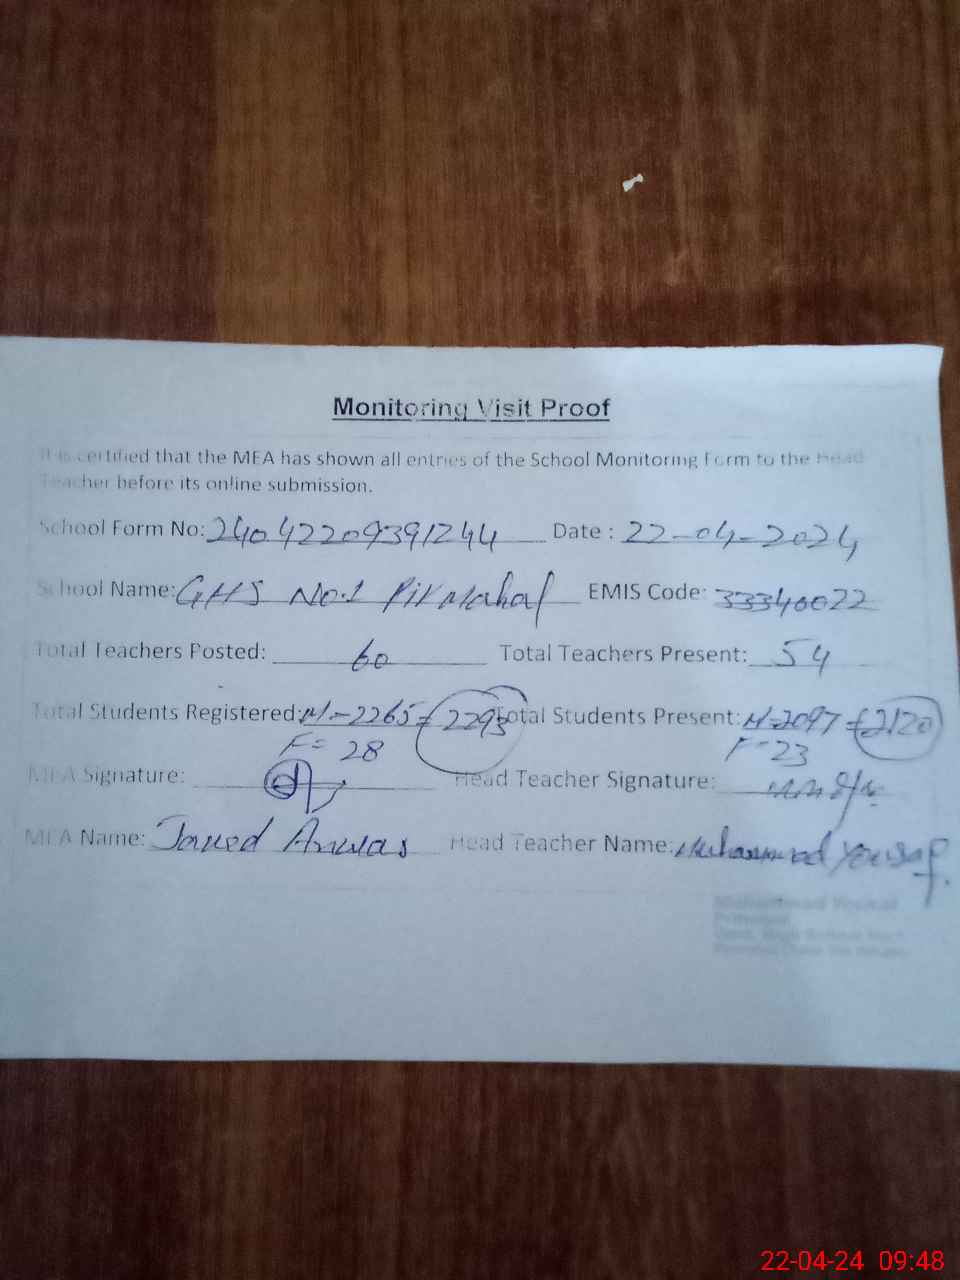 Monitoring Visit Proof
It is certified that the MEA has shown all entries of the School Monitoring Form to the Head
Teacher before its online submission.
School Form No: 24042209391244 Date : 22-04-2024
School Name: GHS No.1 Pir Mahal EMIS Code: 33340022
Total Teachers Posted: 60 Total Teachers Present: 54
Total Students Registered: M-2265 = 2293 Total Students Present: M-2097 = 2120
F= 28 F-23
MEA Signature: Head Teacher Signature:
MEA Name: Javed Anwar Head Teacher Name: Muhammad Yousaf
Principal
22-04-24 09:48